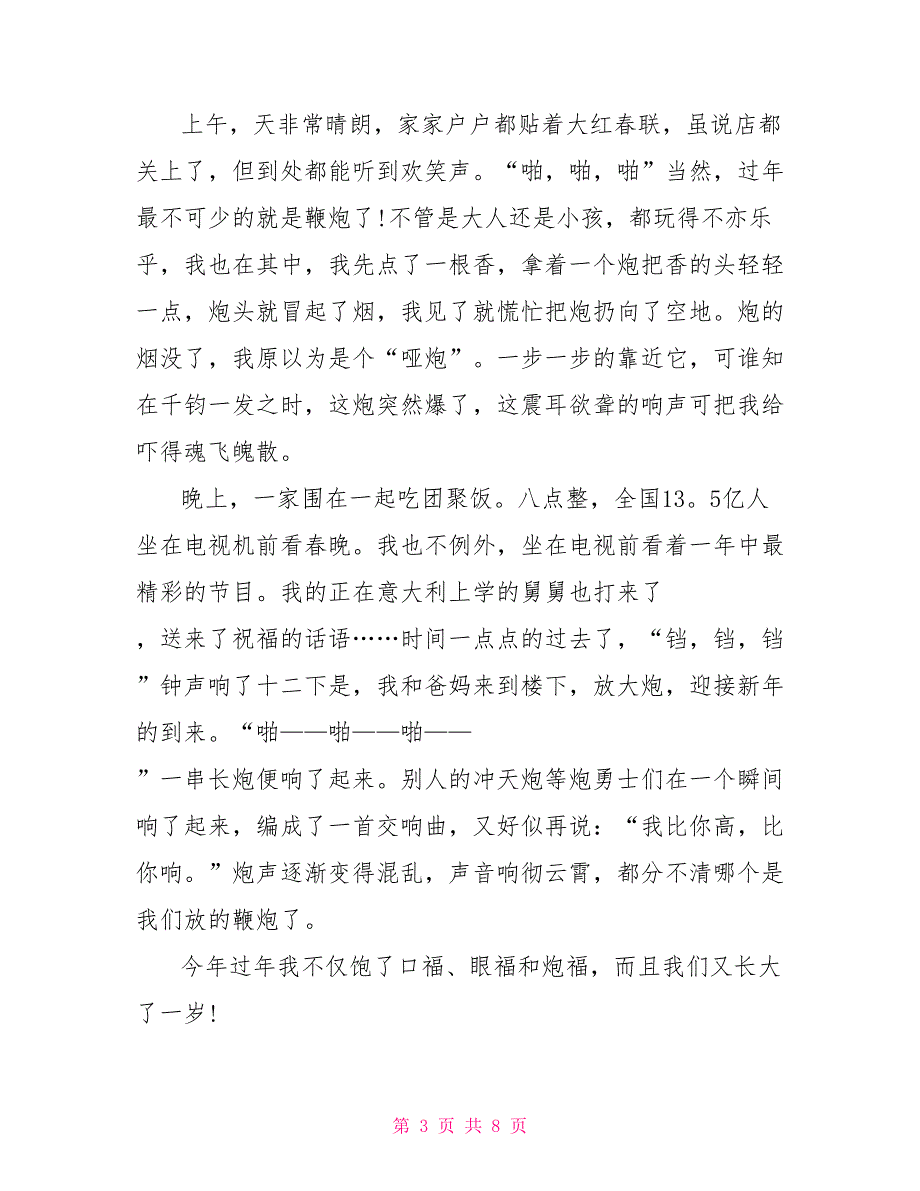 上午，天非常晴朗，家家户户都贴着大红春联，虽说店都
关上了，但到处都能听到欢笑声。“啪，啪，啪”当然，过年
最不可少的就是鞭炮了!不管是大人还是小孩，都玩得不亦乐
乎，我也在其中，我先点了一根香，拿着一个炮把香的头轻轻
一点，炮头就冒起了烟，我见了就慌忙把炮扔向了空地。炮的
烟没了，我原以为是个“哑炮”。一步一步的靠近它，可谁知
在千钧一发之时，这炮突然爆了，这震耳欲聋的响声可把我给
吓得魂飞魄散。
晚上，一家围在一起吃团聚饭。八点整，全国13。5亿人
坐在电视机前看春晚。我也不例外，坐在电视前看着一年中最
精彩的节目。我的正在意大利上学的舅舅也打来了
，送来了祝福的话语……时间一点点的过去了，“铛，铛，铛
”钟声响了十二下是，我和爸妈来到楼下，放大炮，迎接新年
的到来。“啪——啪——啪——
”一串长炮便响了起来。别人的冲天炮等炮勇士们在一个瞬间
响了起来，编成了一首交响曲，又好似再说：“我比你高，比
你响。”炮声逐渐变得混乱，声音响彻云霄，都分不清哪个是
我们放的鞭炮了。
今年过年我不仅饱了口福、眼福和炮福，而且我们又长大
了一岁!
第 3 页 共 8 页